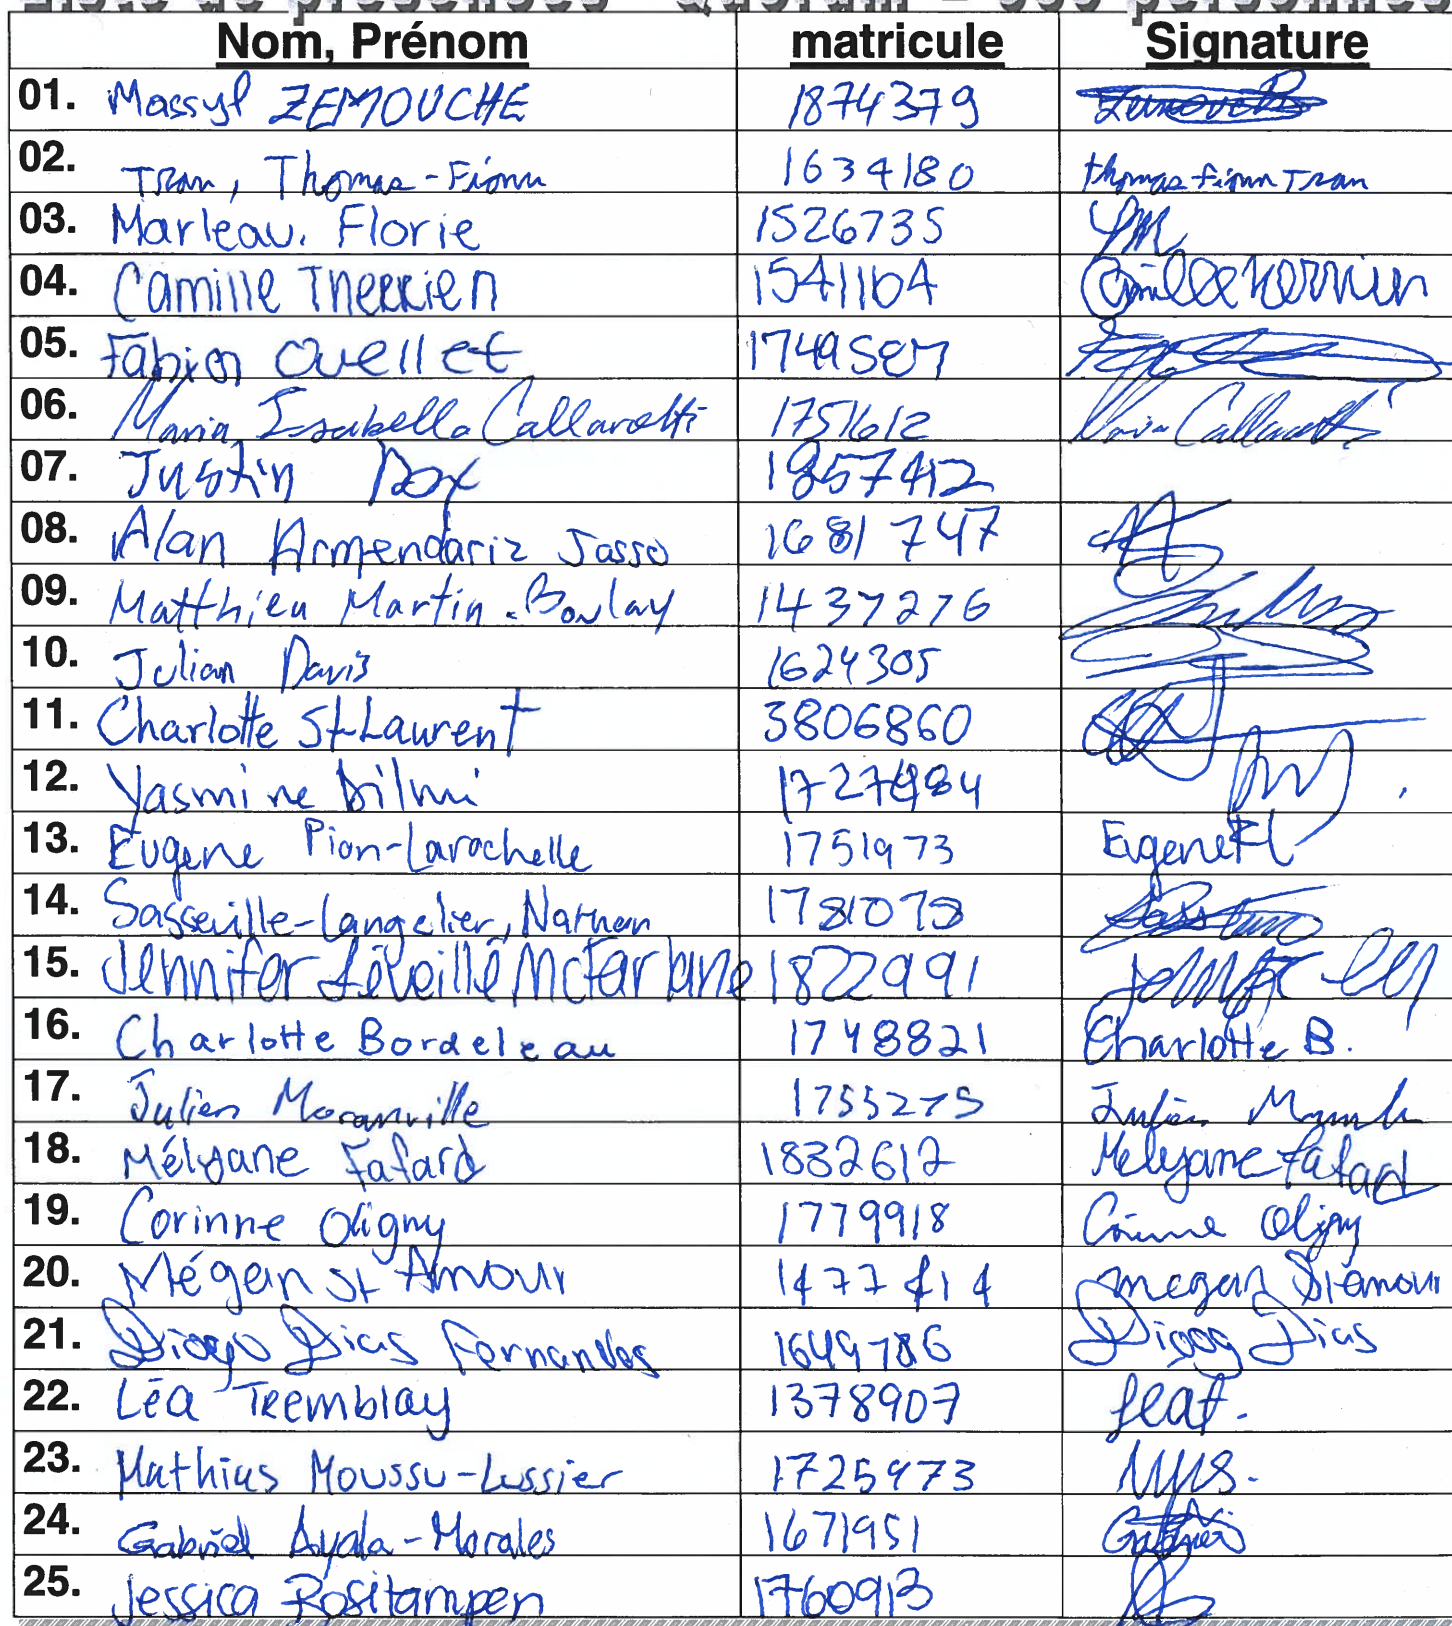 Liste de présences - Quorum = 300 personnes
Nom, Prénom matricule Signature
01. Massyl ZEMOUCHE 1874379
02. Tran, Thomas-Fionn 1634180 Thomas Fionn Tran
03. Marleau, Florie 1526735 FM
04. Camille Therrien 1541164 Camille Therrien
05. Fabien Ouellet 1749587
06. Maria Isabella Callarotti 1751612 Maria Callarotti
07. Justin 1857412
08. Alan Armendariz Sasso 1681747
09. Matthieu Martin-Boulay 1437276
10. Julian Davis 1624305
11. Charlotte St-Laurent 3806860
12. Yasmine Dilmi
13. Eugene Pion-Larochelle 1751973 Eugene PL
14. Sasseville-Langelier, Nathan
15. Jennifer Léveillé McFarlane 1822991
16. Charlotte Bordeleau 1748821 Charlotte B.
17. Julien Moranville 1755275 Julien
18. Mélyane Fafard 1832612 Mélyane Fafard
19. Corinne Oligny 1779918 Corinne Oligny
20. Mégan St Amour 1477414 Megan St amour
21. Diogo Dias Fernandes 1649786 Diogo Dias
22. Léa Tremblay 1378907 Lea T.
23. Mathias Moussu-Lussier 1725973
24. Gabriel Ayala-Morales 1671951 Gabriel
25. Jessica Rositampen 1760913